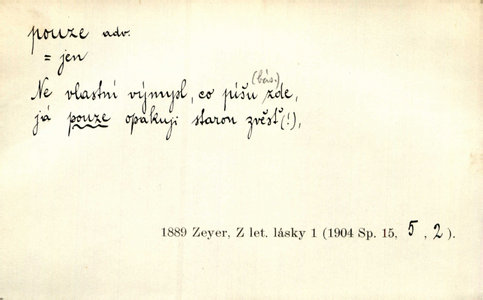 pouze adv.
= jen
(bás.)
Ne vlastní výmysl, co píšu zde,
já pouze opakuji starou zvěsť(!),
1889 Zeyer, Z let. lásky 1 (1904 Sp. 15, 5, 2).